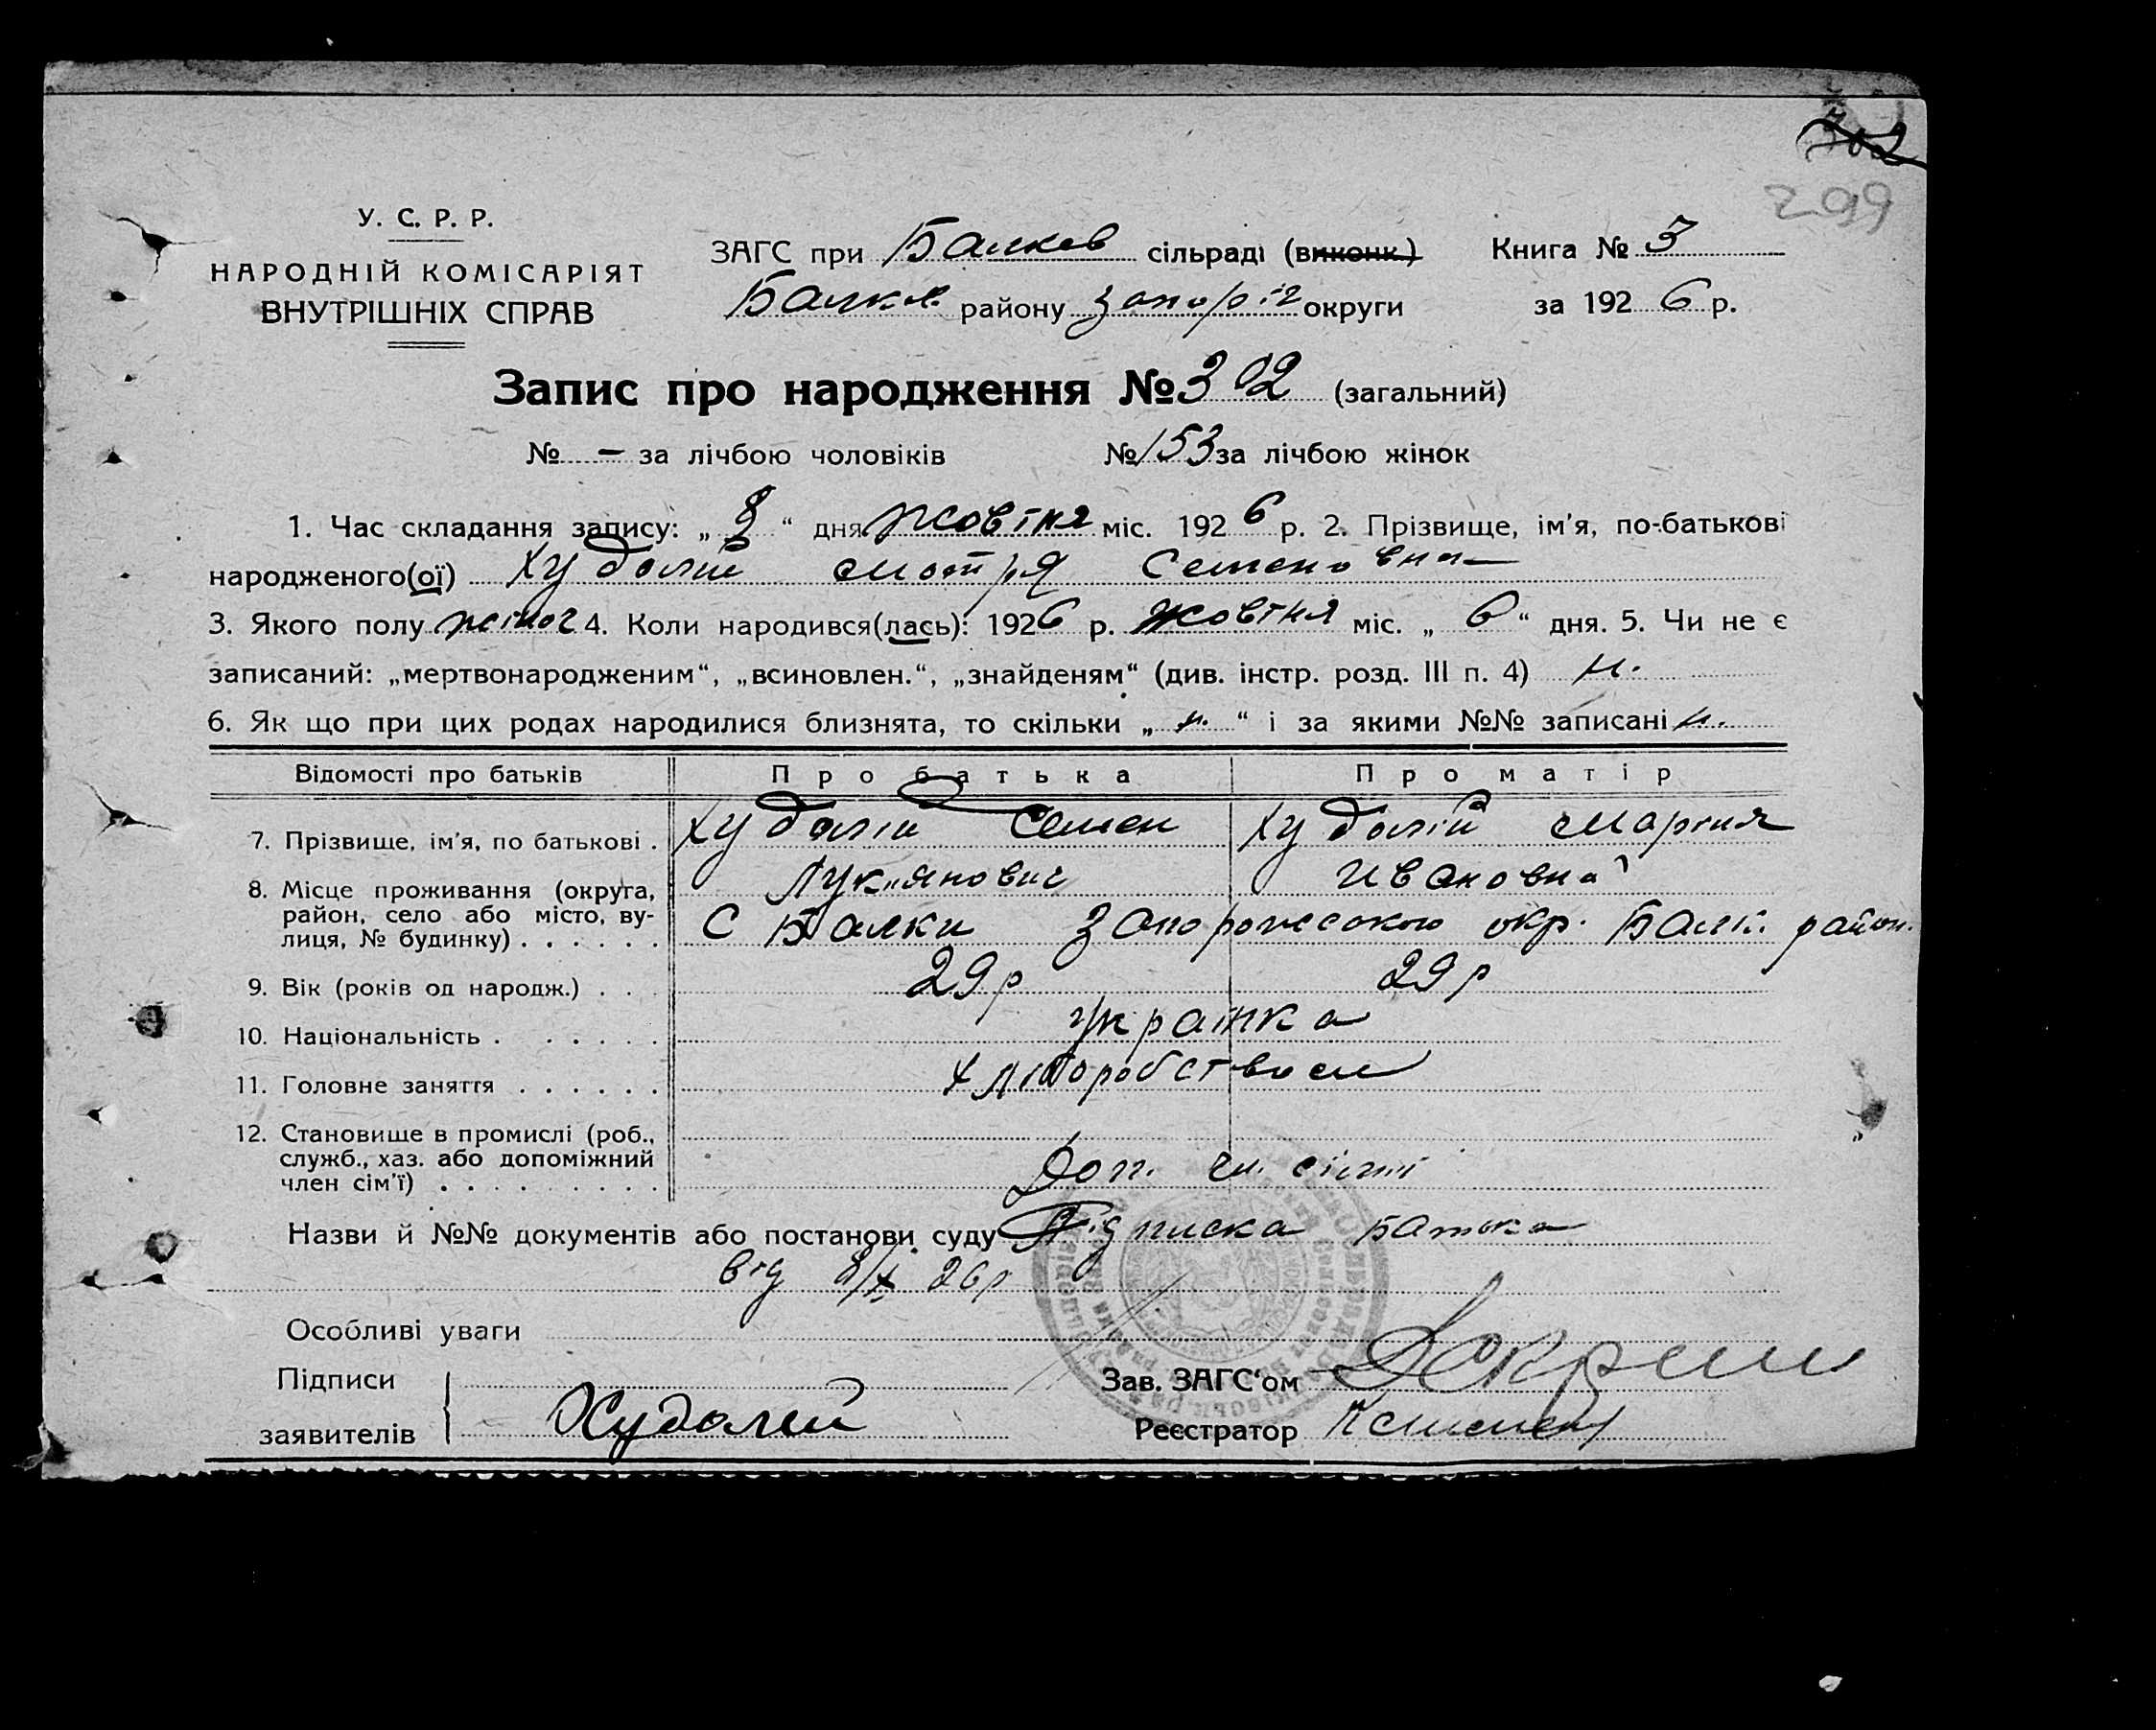 302
299
У. С. Р. Р.
НАРОДНІЙ КОМІСАРІЯТ
ВНУТРІШНІХ СПРАВ
ЗАГС при Балков сільраді (виконк.) Книга № 3
Балків. району Запоріг округи за 1926 р.
Запис про народження № 302 (загальний)
№ — за лічбою чоловіків № 153 за лічбою жінок
1. Час складання запису: „8“ дня жовтня міс. 1926 р. 2. Прізвище, ім'я, по-батькові
народженого(ої) Худолій Мотря Семеновна
3. Якого полу жіноч 4. Коли народився(лась): 1926 р. жовтня міс. „6“ дня. 5. Чи не є
записаний: „мертвонародженим“, „всиновлен.“, „знайденям“ (див. інстр. розд. III п. 4) н.
6. Як що при цих родах народилися близнята, то скільки „н.“ і за якими №№ записані н.
Відомості про батьків Про батька Про матір
7. Прізвище, ім'я, по батькові . Худолій Семен Худолій Мария
Лук'янович Ивановна
8. Місце проживання (округа, район, село або місто, вулиця, № будинку) . . . . . . С Балки Запорожского окр. Балк. район.
9. Вік (років од народж.) . . . 29 р 29 р
10. Національність . . . . . . українка
11. Головне заняття . . . . . . хліборобством
12. Становище в промислі (роб., служб., хаз. або допоміжний член сім'ї) . . . . . . . . . Доп. чл. сімї
Назви й №№ документів або постанови суду Підписка батька
від 8/X 26 р
Особливі уваги
Підписи
заявителів Худолий
Зав. ЗАГС'ом
Реєстратор